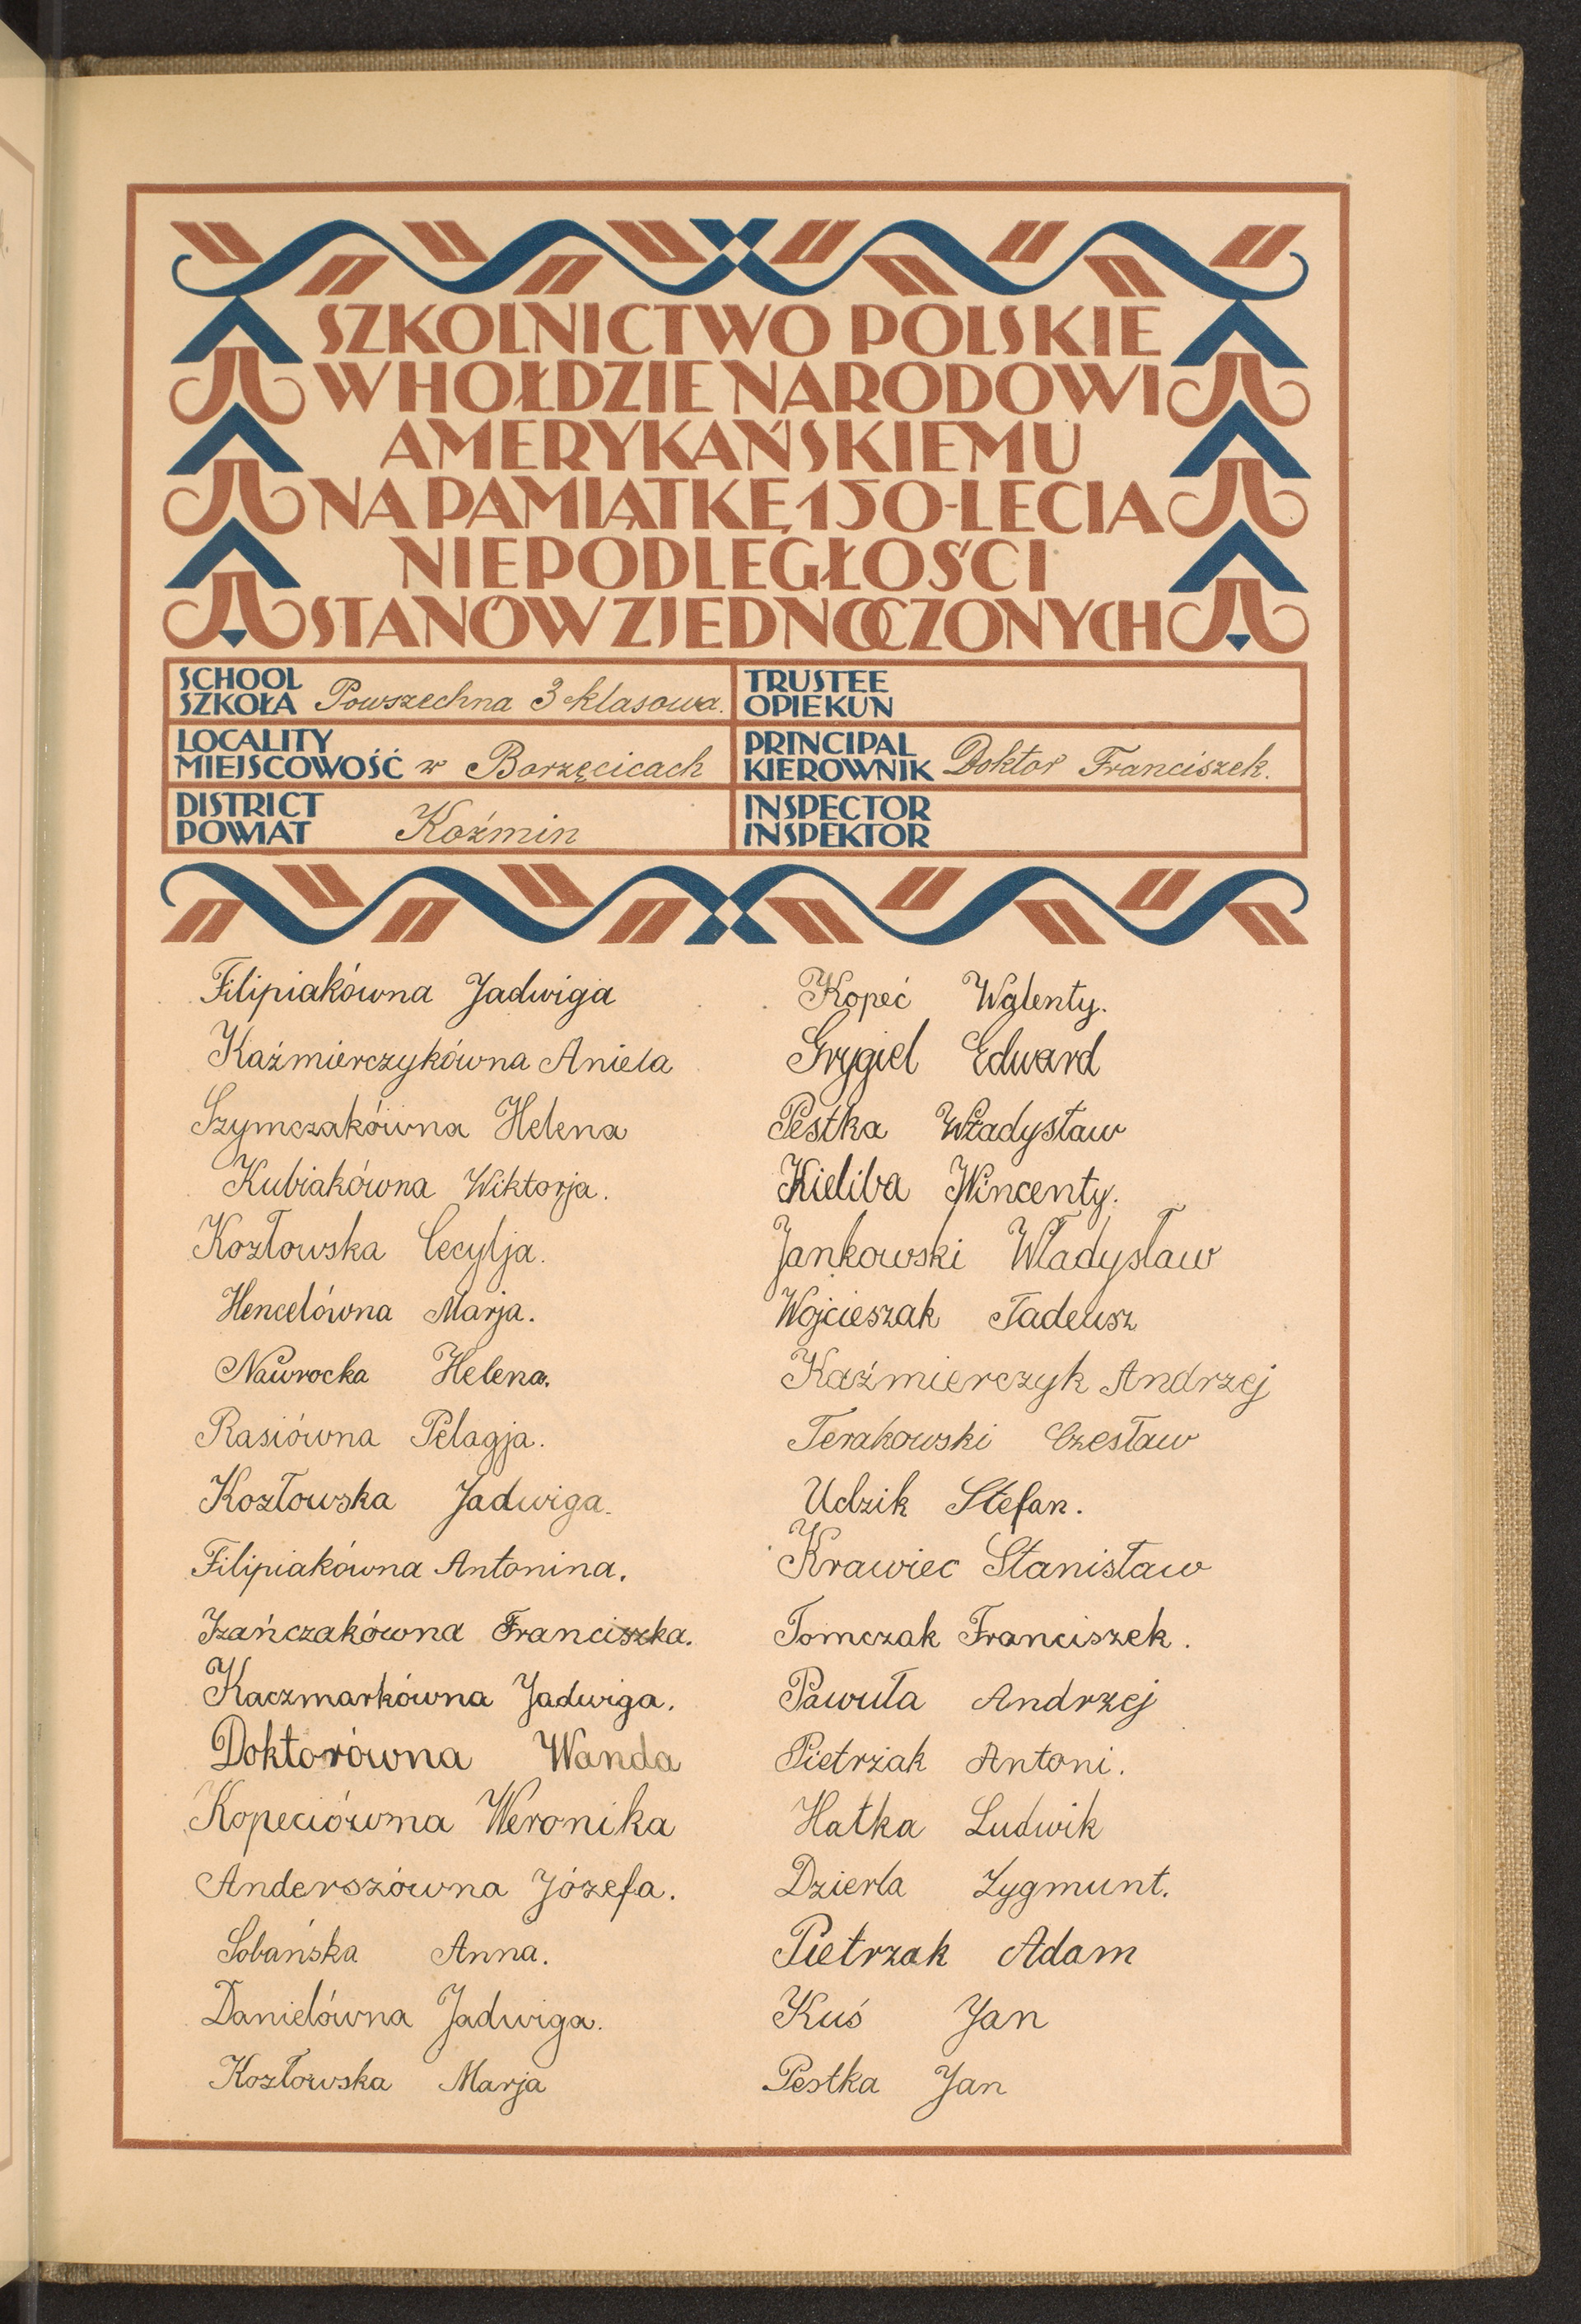 SZKOLNICTWO POLSKIE
W HOŁDZIE NARODOWI
AMERYKAŃSKIEMU
NA PAMIĄTKĘ 150-LECIA
NIEPODLEGŁOŚCI
STANÓW ZJEDNOCZONYCH
SCHOOL
SZKOŁA Powszechna 3 klasowa.
TRUSTEE
OPIEKUN
LOCALITY
MIEJSCOWOŚĆ w Borzęcicach
PRINCIPAL
KIEROWNIK Doktor Franciszek.
DISTRICT
POWIAT Koźmin
INSPECTOR
INSPEKTOR
Filipiakówna Jadwiga
Kaźmierczykówna Aniela
Szymczakówna Helena
Kubiakówna Wiktorja.
Kozłowska Cecylja.
Hencelówna Marja.
Nawrocka Helena.
Rasiówna Pelagja.
Kozłowska Jadwiga.
Filipiakówna Antonina.
Franciszka.
Kaczmarkówna Jadwiga.
Doktorówna Wanda
Kopeciówna Weronika
Anderszówna Józefa.
Sobańska Anna.
Danielówna Jadwiga.
Kozłowska Marja
Kopeć Walenty.
Grygiel Edward
Pestka Władysław
Kieliba Wincenty.
Jankowski Władysław
Wojcieszak Tadeusz
Kaźmierczyk Andrzej
Terakowski Czesław
Udzik Stefan.
Krawiec Stanisław
Tomczak Franciszek.
Pawuła Andrzej
Pietrzak Antoni.
Hatka Ludwik
Dzierla Zygmunt.
Pietrzak Adam
Kuś Jan
Pestka Jan